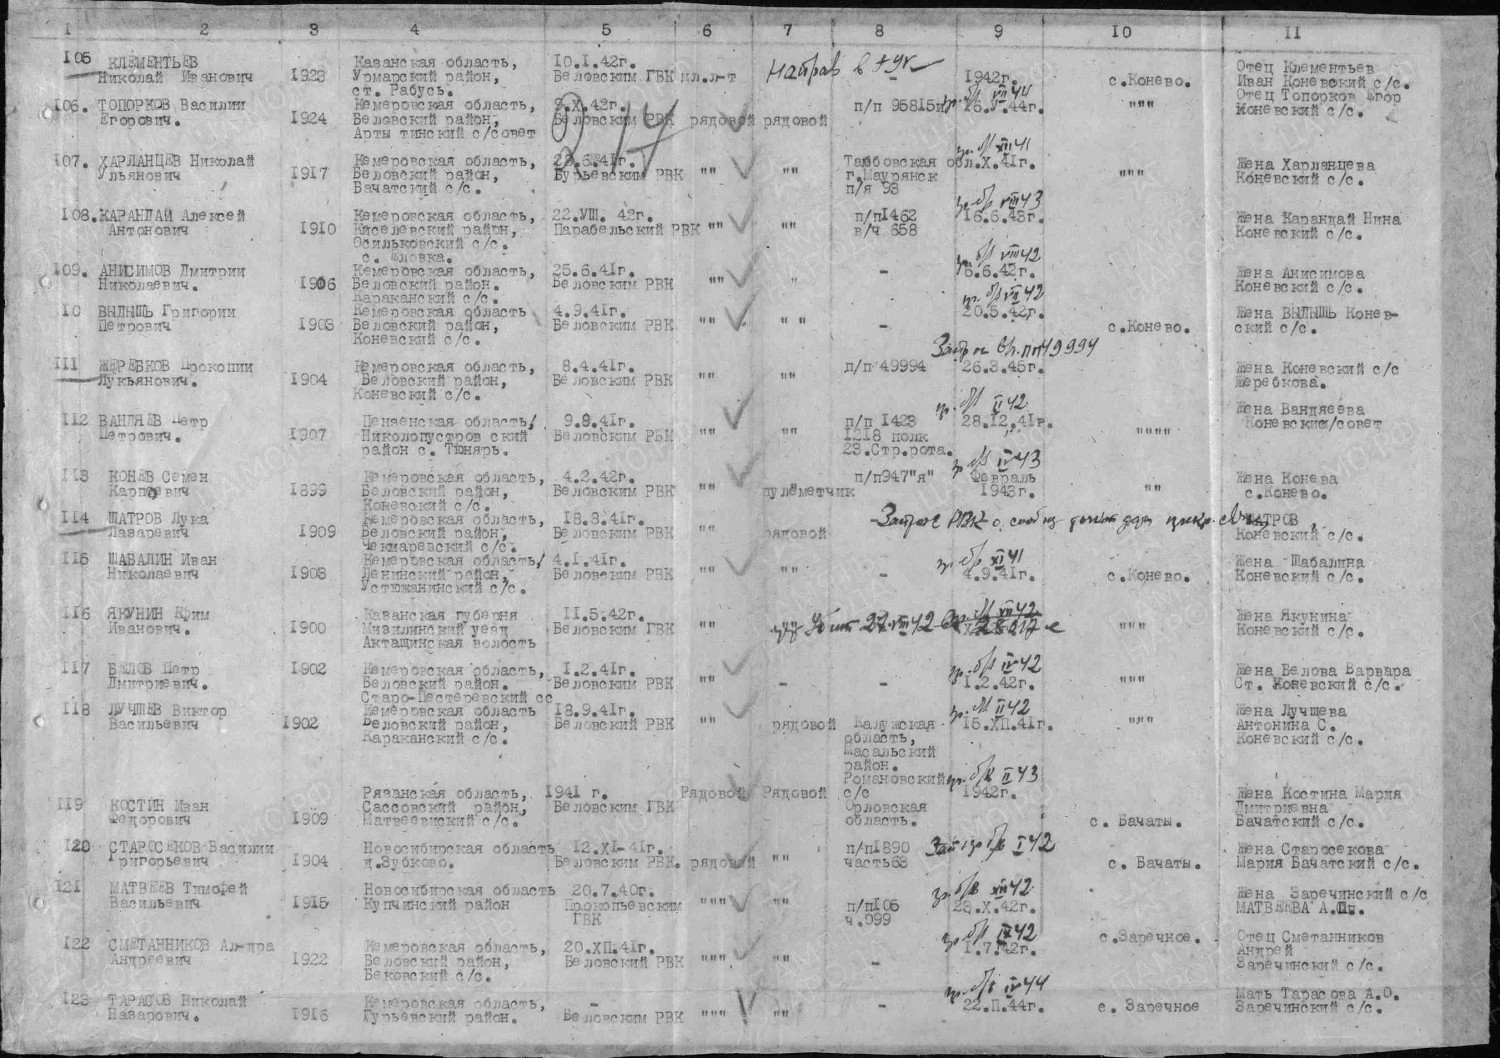 1 2 3 4 5 6 7 8 9 10 11
105 КЛЕМЕНТЬЕВ Казанская область, 10.1.42г. Направ в 1942г. Отец Клементьев
Николай Иванович 1923 Урмарский район, Беловским ГВК мл.л-т - с.Конево. Иван Коневский с/с.
ст. Рабусь.
106. ТОПОРКОВ Василии Кемеровская область, 9.X.42г. п/п 95815и пр. б/в VII 44 25.V.44г. """ Отец Топорков Егор
Егорович. 1924 Беловский район, Беловским РВК рядовой рядовой Коневский с/с.
Арты тинский с/совет
107. ХАРЛАНЦЕВ Николай Кемеровская область, 23.6.41г. Тамбовская обл. пр. б/в XII 41 X.41г. Жена Харланцева
Ульянович 1917 Беловский район, Гурьевским РВК "" "" г.Маурянск """ Коневский с/с.
Бачатский с/с. п/я 93
108. КАРАНДАЙ Алексей Кемеровская область, 22.УШ. 42г. п/п1462 пр. б/в VIII 43 16.6.43г. Жена Карандай Нина
Антонович 1910 Киселевский район, Парабельский РВК "" "" в/ч 658 Коневский с/с.
Осильковский с/с.
109. АНИСИМОВ Дмитрии Кемеровская область, 25.6.41г. - пр. б/в VIII 42 6.6.42г. Жена Анисимова
Николаевич. 1906 Беловский район. Беловским РВК "" " Коневский с/с.
Караканский с/с.
10 ВЫЛЫЩЬ Григории Кемеровская область 4.9.41г. пр. б/в VII 42 20.5.42г. Жена ВЫЛЫЩЬ Конев-
Петрович 1908 Беловский район, Беловским РВК "" "" - с.Конево. ский с/с.
Коневский с/с.
111 ЖЕРЕБКОВ Прокопии Кемеровская область, 8.4.41г. п/п 49994 26.3.45г. Жена Коневский с/с
Лукьянович. 1904 Беловский район, Беловским РВК "" "" Жеребкова.
Коневский с/с.
112 ВАНДЯЕВ Петр Пензенская область, 9.9.41г. п/п 1423 пр. б/в II 42 28.12.41г. Жена Вандяева
Петрович. 1907 Николопустров ский Беловским РВК "" "" 1218 полк """" Коневский/совет
район с. Тюнярь. 23.Стр.рота.
113 КОНЕВ Семен Кемеровская область, 4.2.42г. п/п947"я" пр. б/в IV 43 Февраль Жена Конева
Карпович 1899 Беловский район, Беловским РВК "" пулеметчик 1943г. "" с.Конево.
Коневский с/с.
114 ШАТРОВ Лука Кемеровская область, 18.3.41г. ШАТРОВ
Лазаревич 1909 Беловский район, Беловским РВК "" рядовой Коневский с/с.
Чекмаревский с/с.
115 ШАБАЛИН Иван Кемеровская область, 4.1.41г. пр. б/в XI 41 Жена Шабалина
Николаевич 1908 Ленинский район, Беловским РВК "" "" - 4.9.41г. с.Конево. Коневский с/с.
Устюжанинский с/с.
116 ЯКУНИН Ефим Казанская губерня 11.5.42г. VII 42 Жена Якунина
Иванович. 1900 Мизилинский уезд Беловским ГВК "" """ Коневский с/с.
Актащинская волость
117 БЕЛОВ Петр 1902 Кемеровская область, 1.2.41г. пр. б/в IV 42 Жена Белова Варвара
Дмитриевич. Беловский район. Беловским РВК "" - - 1.2.42г. """ Ст. Коневский с/с.
Старо-Пестеревский сс
118 ЛУЧШЕВ Виктор Кемеровская область 18.9.41г. пр. б/в II 42 Жена Лучшева
Васильевич 1902 Беловский район, Беловский РВК "" рядовой Калужская 15.ХП.41г. """ Антонина С.
Караканский с/с. область, Коневский с/с.
Масальский
район.
Романовский пр. б/в II 43
Рязанская область, 1941 г. Рядовой Рядовой с/с 1942г. Жена Костина Мария
119 КОСТИН Иван Сассовский район, Беловским ГВК Орловская Дмитриевна
Федорович 1909 Матвеевиский с/с. область. с. Бачаты. Бачатский с/с.
120 СТАРОСЕКОВ Василии Новосибирская область 12.XI-41г. п/п1890 I 42 Жена Старосекова
Григорьевич 1904 д.Зубково. Беловским РВК. рядовой "" часть63 с. Бачаты. Мария Бачатский с/с.
121 МАТВЕЕВ Тимофей Новосибирская область 20.7.40г. пр. б/в XII 42 Жена Заречинский с/с
Васильевич 1915 Купчинский район Прокопьевским """ "" п/п106 23.X.42г. МАТВЕЕВА А.Пп.
ГВК ч.099
122 СМЕТАННИКОВ Ал-дра Кемеровская область, 20.ХП.41г. пр. б/в IX 42 с.Заречное. Отец Сметанников
Андреевич 1922 Беловский район, Беловским РВК """ "" - 1.7.42г. Андрей
Бековский с/с. Заречинский с/с.
123 ТАРАСОВ Николай Кемеровская область, - - пр. б/в IV 44 Мать Тарасова А.О.
Назарович. 1916 Гурьевский район. Беловским РВК """ "" 22.П.44г. с. Заречное Заречинский с/с.